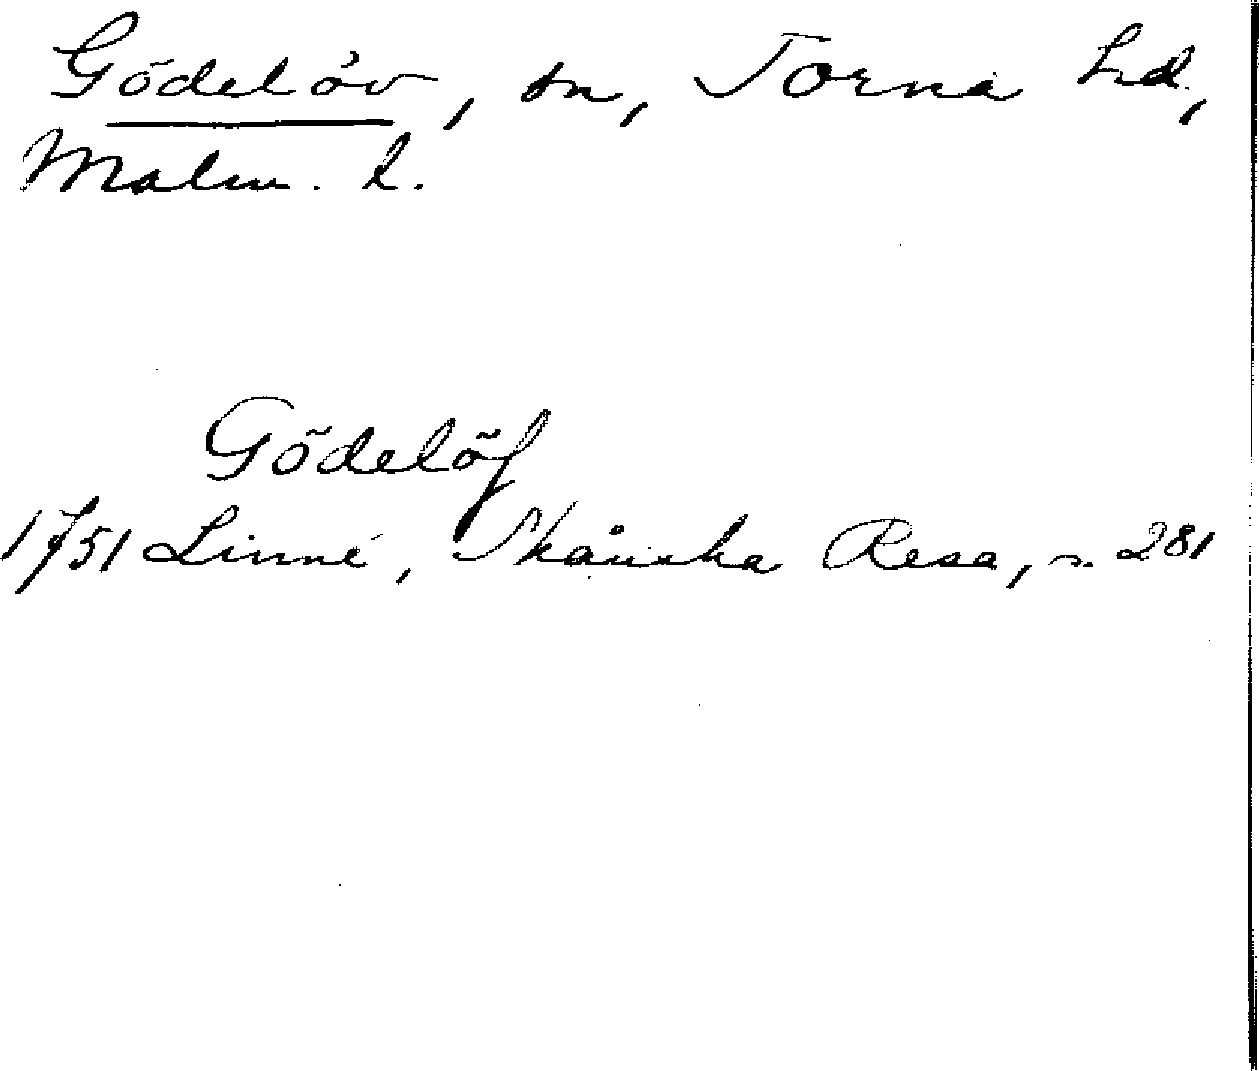 Gödelöv, sn, Torna hd.,
Malm. l.
Gödelöf
1751 Linné, Skånska Resa, s. 281